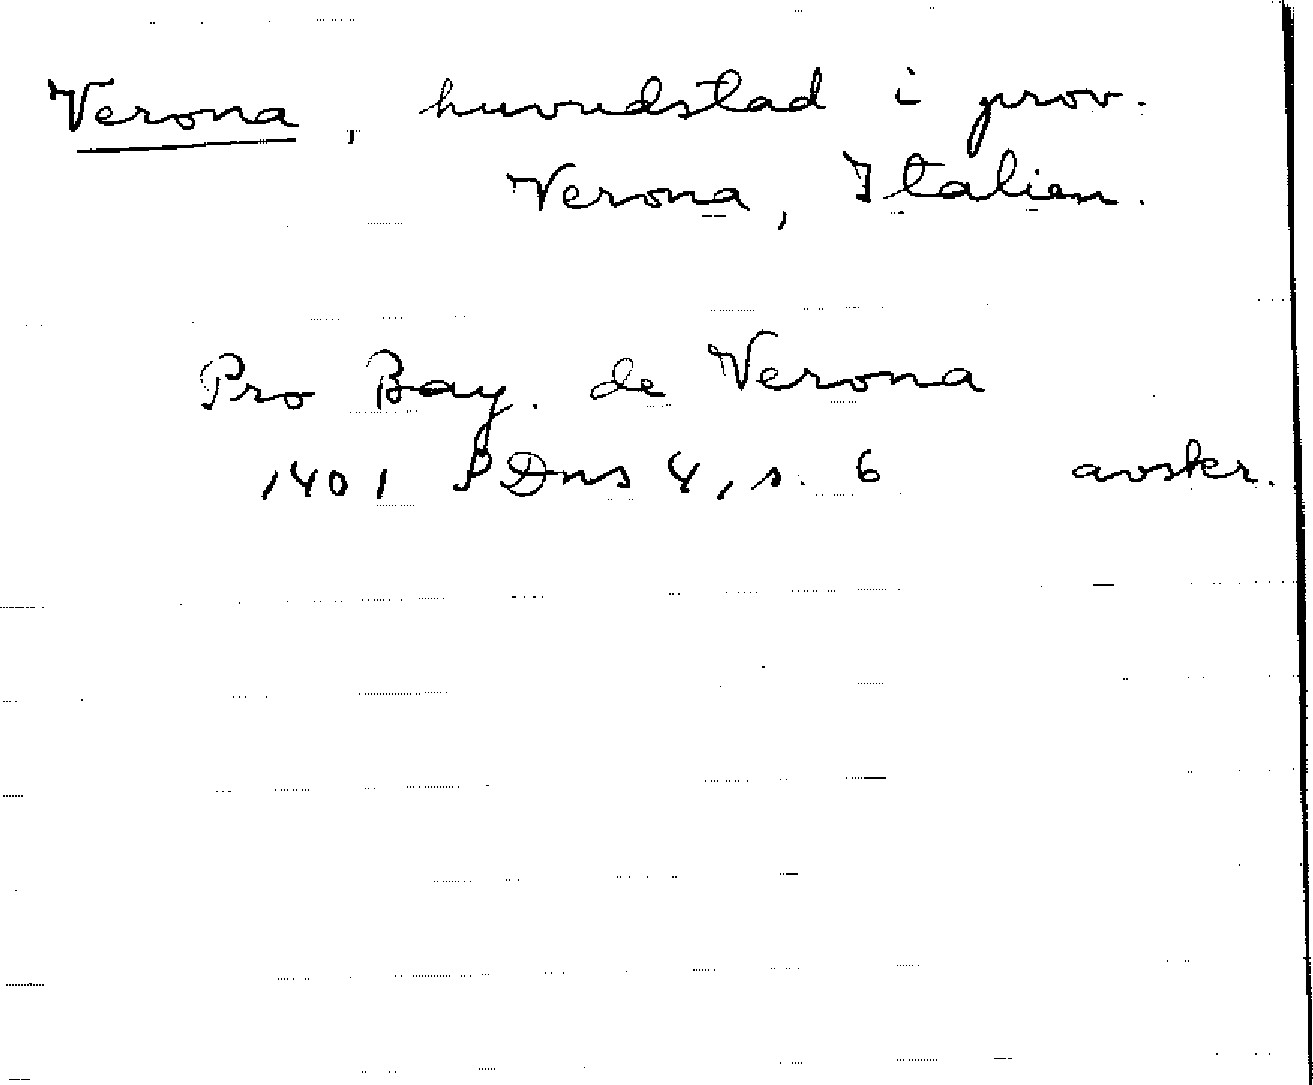 Verona, huvudstad i prov.
Verona, Italien.
Pro Bay. de Verona
1401 PDns 4, s. 6 avskr.